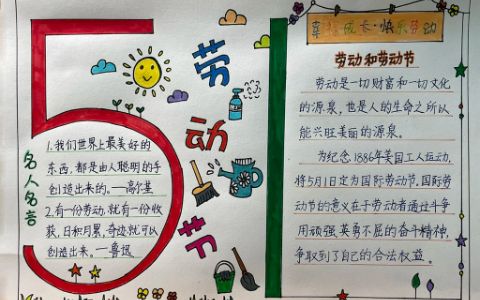 51
幸福成长·快乐劳动
劳动节
名人名言
1.我们世界上最美好的
东西,都是由人聪明的手
创造出来的。—高尔基
2.有一份劳动,就有一份收
获,日积月累,奇迹就可以
创造出来。—鲁迅
劳动和劳动节
劳动是一切财富和一切文化
的源泉,也是人的生命之所以
能兴旺美丽的源泉。
为纪念1886年美国工人运动,
将5月1日定为国际劳动节。国际劳
动节的意义在于劳动者通过斗争
用顽强、英勇不屈的奋斗精神,
争取到了自己的合法权益。